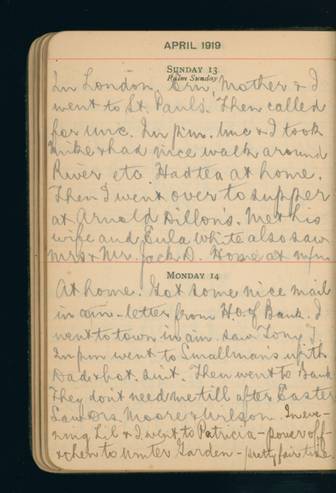 APRIL 1919
SUNDAY 13
Palm Sunday
In London. Ern, Mother & I
went to St. Pauls. Then called
for Unc. In p.m. Unc & I took
Mike & had nice walk around
River etc. Had tea at home.
Then I went over to supper
at Arnold Dillons. Met his
wife and Eula White also saw
Mrs & Mr. Jack D. Home at
MONDAY 14
At home. Got some nice mail
in a.m. - letter from H.O. of Bank. I
went to town in a.m. saw Tony
In p.m. went to Smallman's with
Dad & bot. suit. Then went to Bank
They don't need me till after Easter
Saw Drs. Moore & Wilson. In eve-
ning Lil & I went to Patricia - power off
& then to Winter Garden - pretty fair time